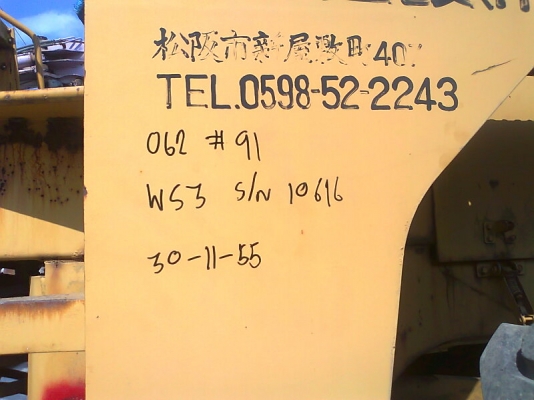 松阪市新屋敷町407
TEL.0598-52-2243
062 #91
WS3 S/N 10616
30-11-55